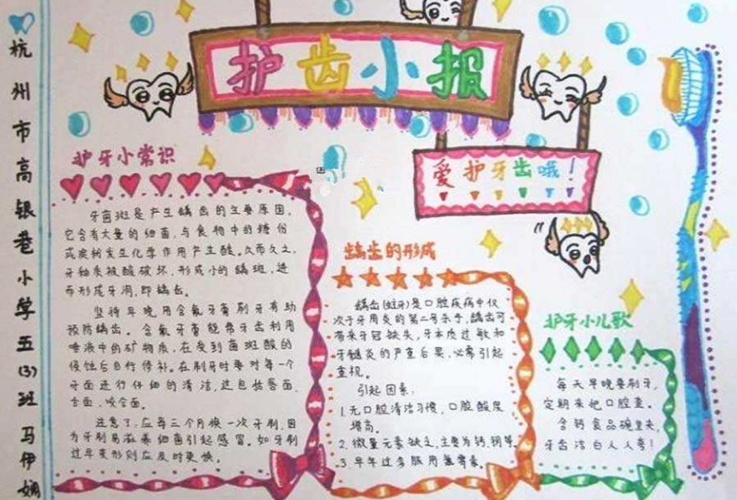 杭州市高银巷小学五(3)班 马伊娴
护齿小报
爱护牙齿哦！
护牙小常识
牙菌斑是产生龋齿的主要原因，
它含有大量的细菌，与食物中的糖份
或淀粉发生化学作用产生酸。久而久之，
牙釉质被酸破坏，形成小的龋斑，进
而形成牙洞，即龋齿。
坚持早晚用含氟牙膏刷牙有助
预防龋齿。含氟牙膏能帮牙齿利用
唾液中的矿物质，在受到菌斑酸的
侵蚀后自行修补。在刷牙时要对每一个
牙面进行仔细的清洁，这包括唇面、
舌面、咬合面。
注意了：应每三个月换一次牙刷，因
为牙刷易滋养细菌引起感冒，如牙刷
过早变形则应及时更换。
龋齿的形成
龋齿(蛀牙)是口腔疾病中仅
次于牙周炎的第二号杀手，龋齿可
带来牙冠缺失，牙本质过敏和
牙髓炎的严重后果，必需引起
重视。
引起因素：
1.无口腔清洁习惯，口腔酸度
增高。
2.微量元素缺乏，主要为钙、铜等
3.早年过多服用氟毒素。
护牙小儿歌
每天早晚要刷牙，
定期来把口腔查。
含钙食品碗里夹，
牙齿洁白人人夸！